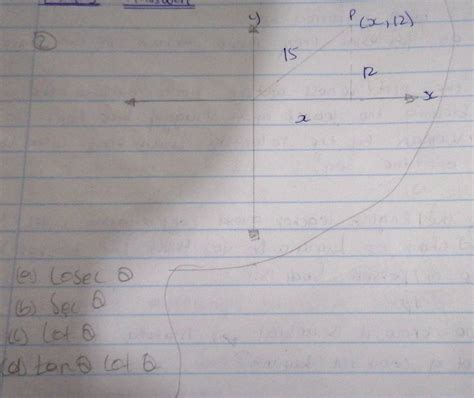 Answer
y
P (x, 12)
②
15
12
x
x
(a) Cosec θ
(b) Sec θ
(c) Cot θ
(d) tan θ Cot θ